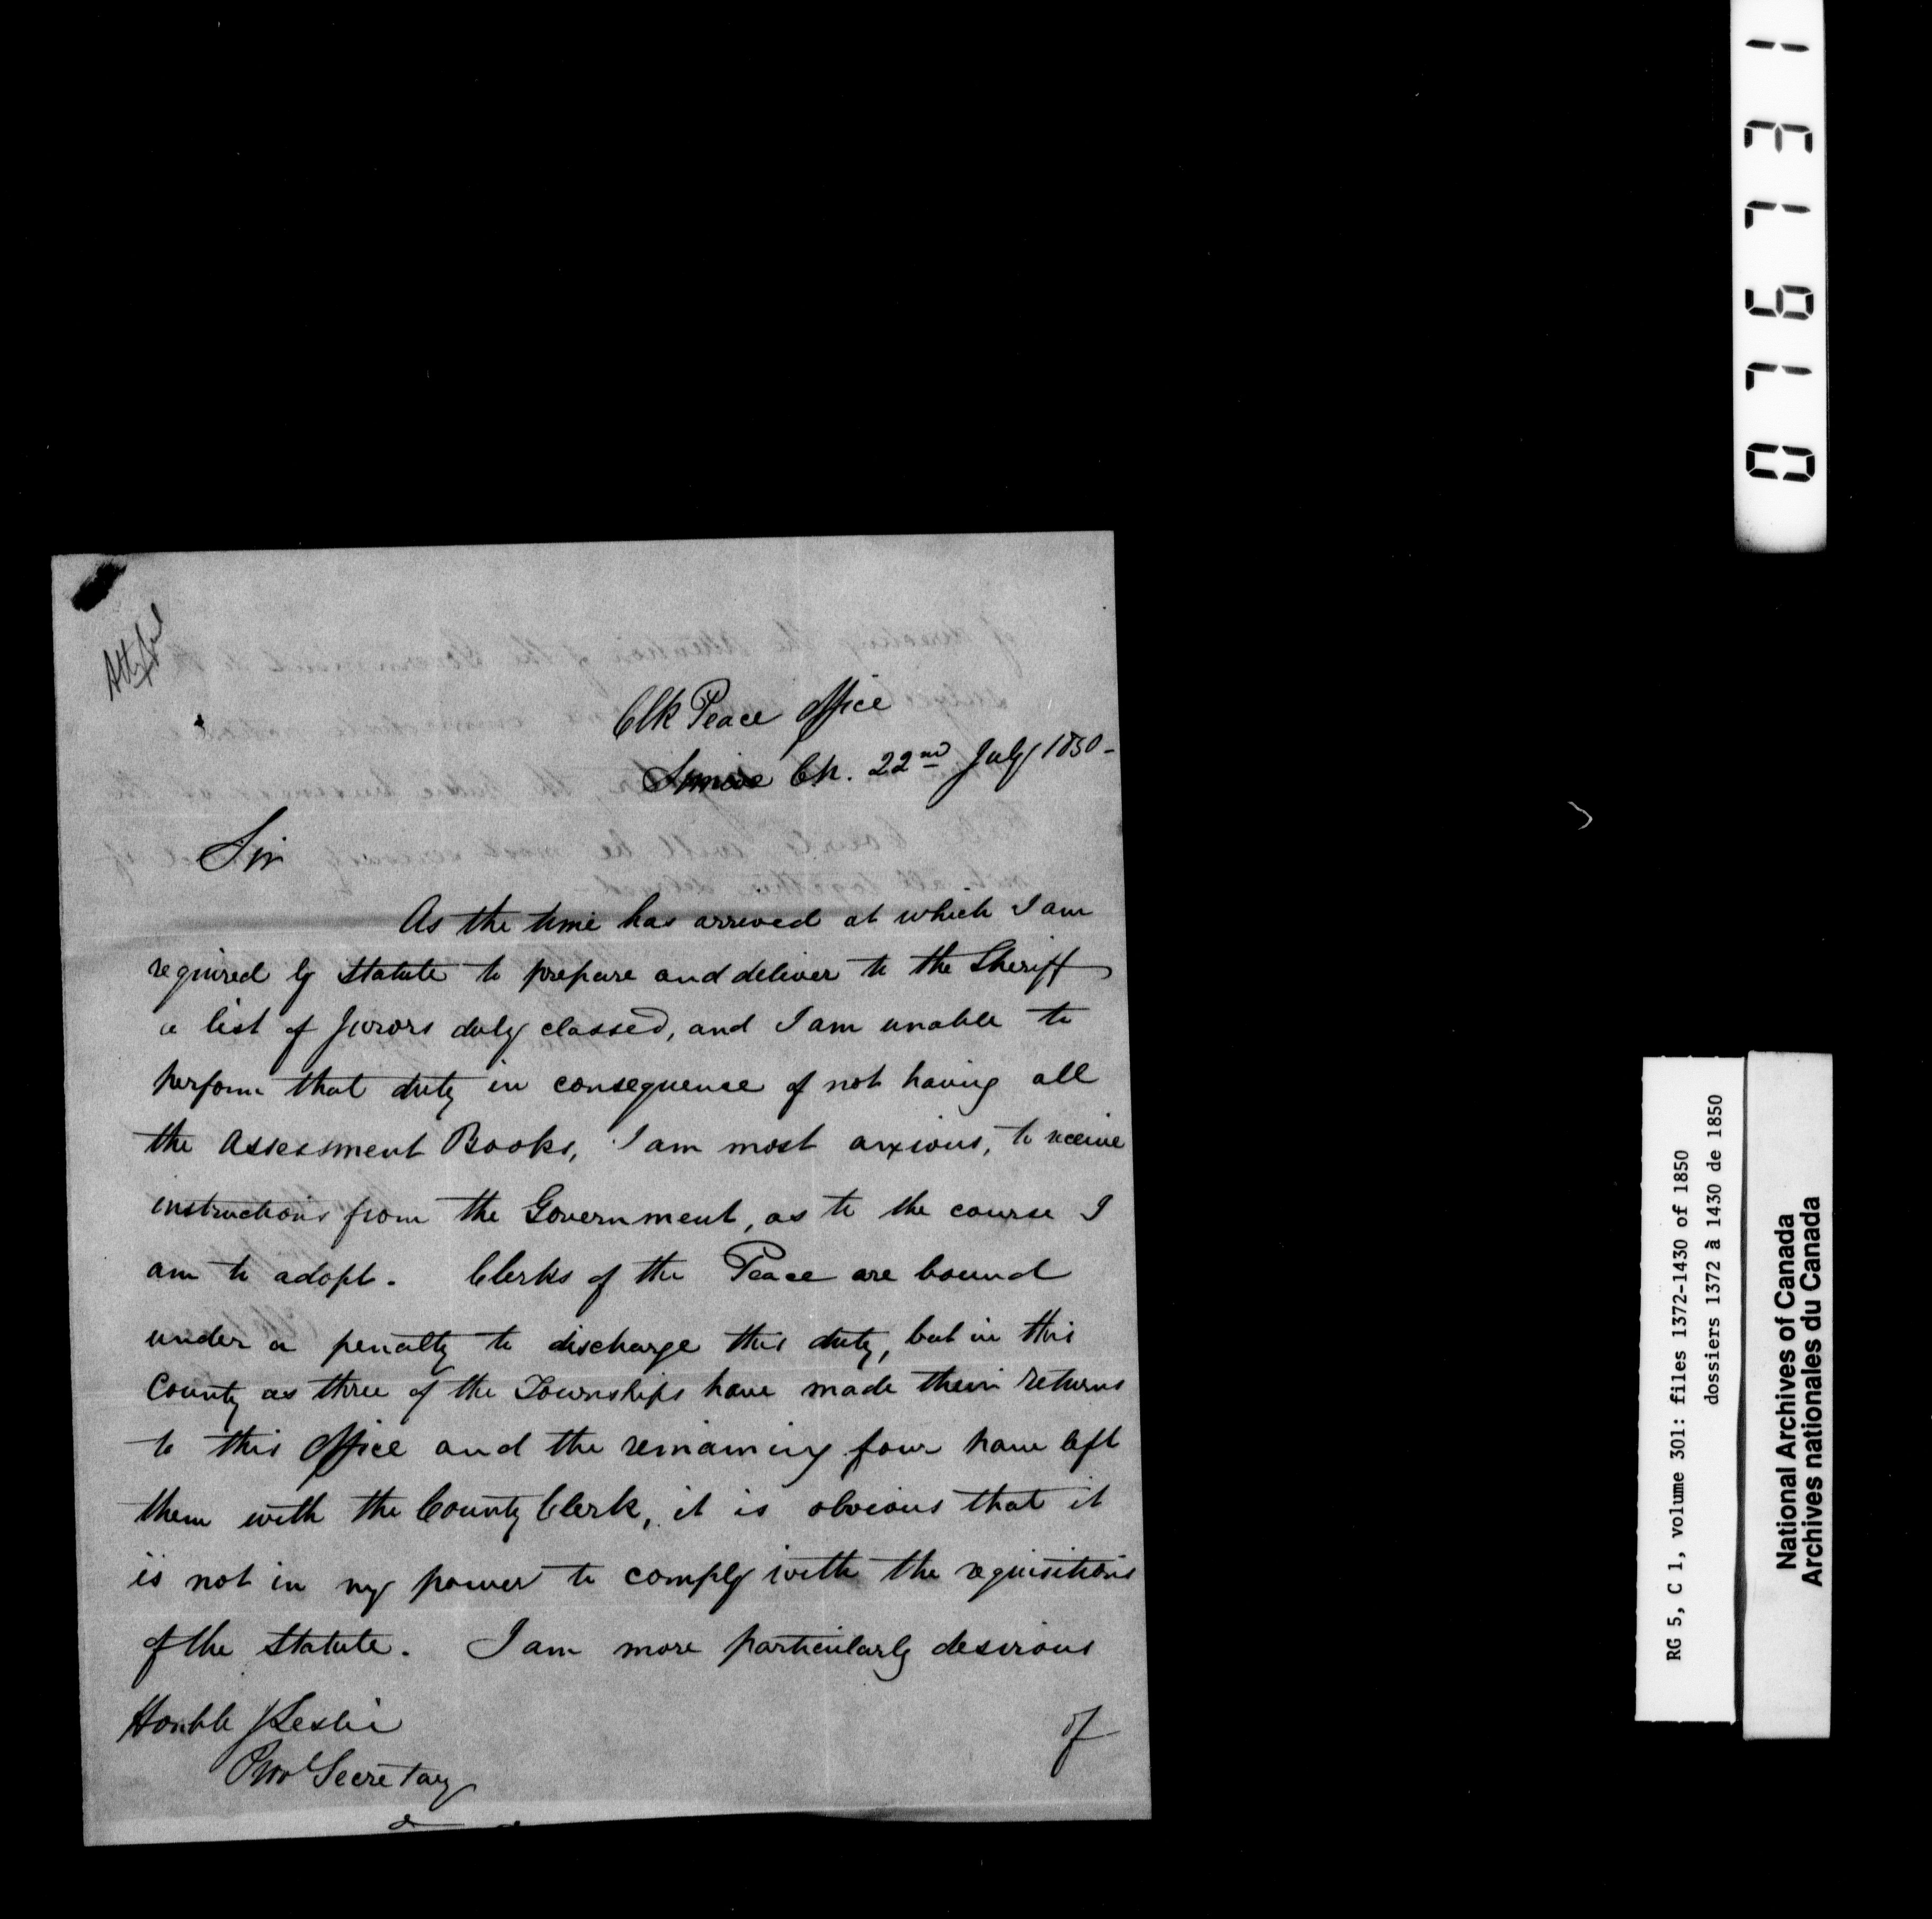 Clk Peace Office
Simcoe Ch. 22nd July 1850-
Sir
As the time has arrived at which I am
required by Statute to prepare and deliver to the Sheriff
a list of Jurors duly classed, and I am unable to
perform that duty in consequence of not having all
the Assessment Books, I am most anxious, to receive
instructions from the Government, as to the course I
am to adopt. Clerks of the Peace are bound
under a penalty to discharge this duty, but in this
County as three of the Townships have made their returns
to this Office and the remaining four have left
them with the County Clerk, it is obvious that it
is not in my power to comply with the requisitions
of the Statute. I am more particularly desirous
of
Honble J Leslie
Provl Secretary
076731
RG 5, C 1, volume 301: files 1372-1430 of 1850
dossiers 1372 à 1430 de 1850
National Archives of Canada
Archives nationales du Canada